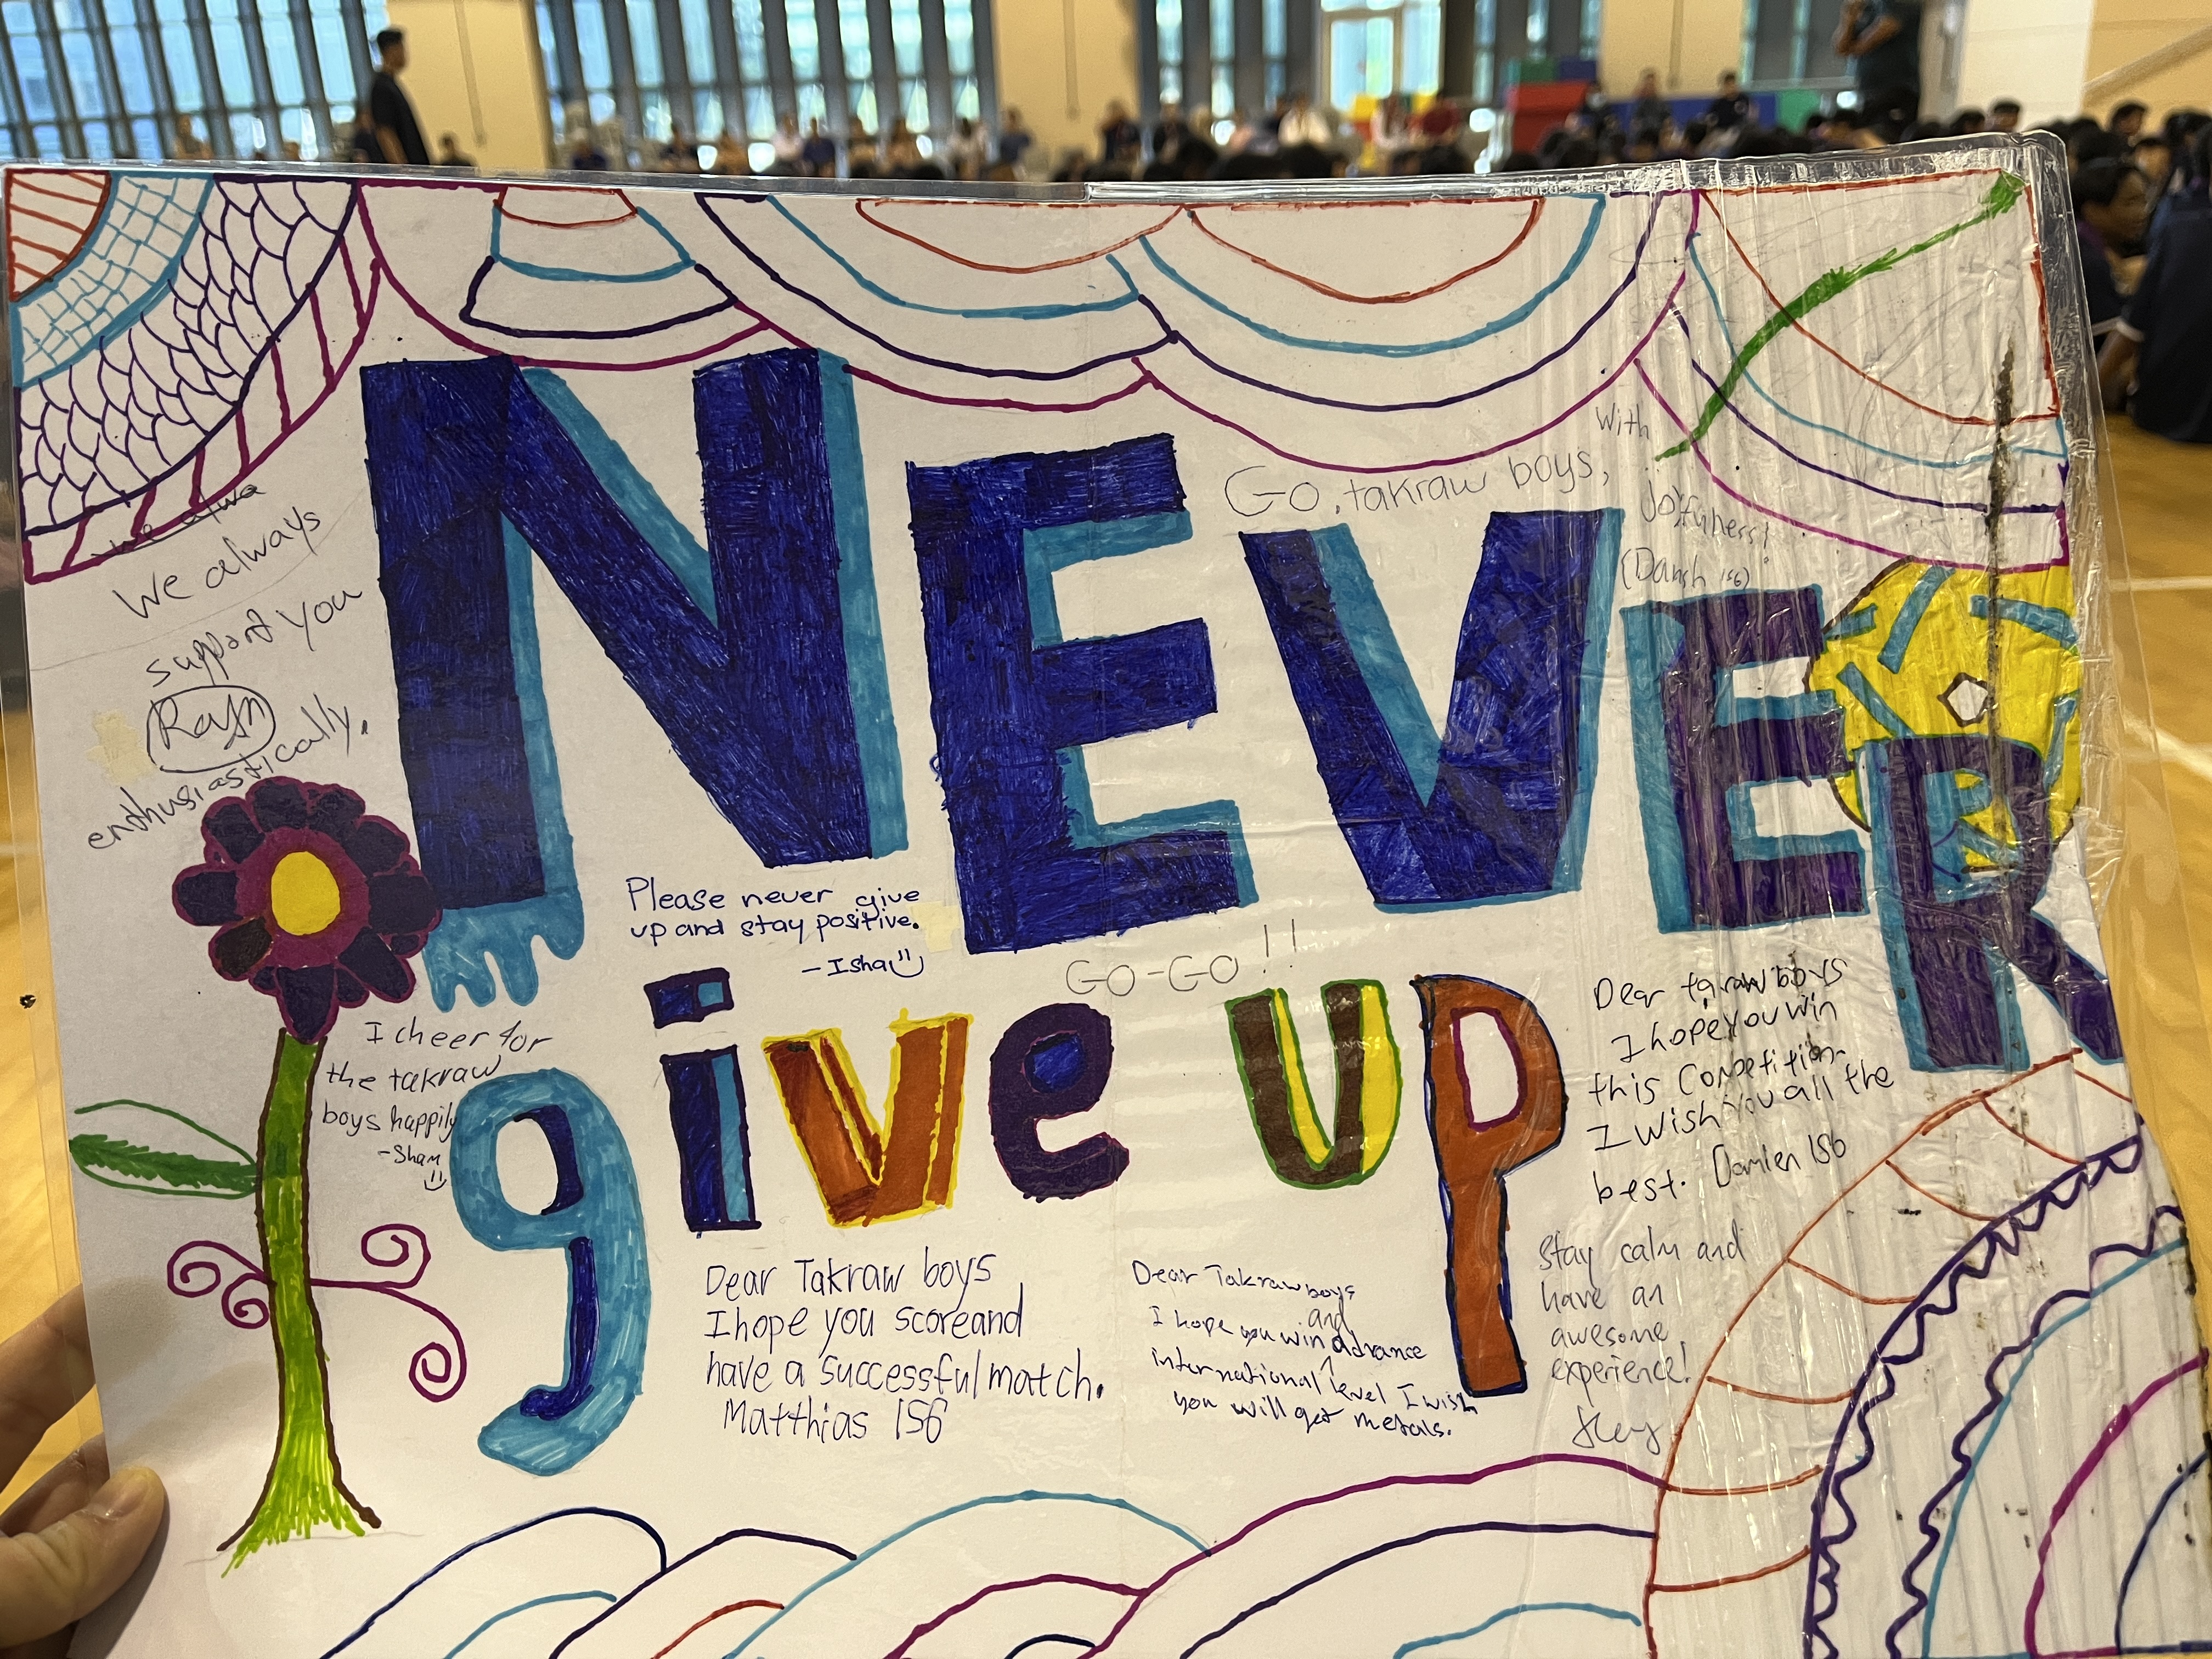 NEVER
give up
We always
support you
enthusiastically.
Go, takraw boys,
With
joyfulness!
Please never give
up and stay positive.
- Isha
GO-GO!!
I cheer for
the takraw
boys happily
- Sham
Dear Takraw boys
I hope you score and
have a successful match.
Matthias 1S6
Dear Takraw boys
I hope you win and advance
international level I wish
you will get metals.
Dear takraw boys
I hope you win
this Competition.
I wish you all the
best. Damien 1S6
Stay calm and
have an
awesome
experience!